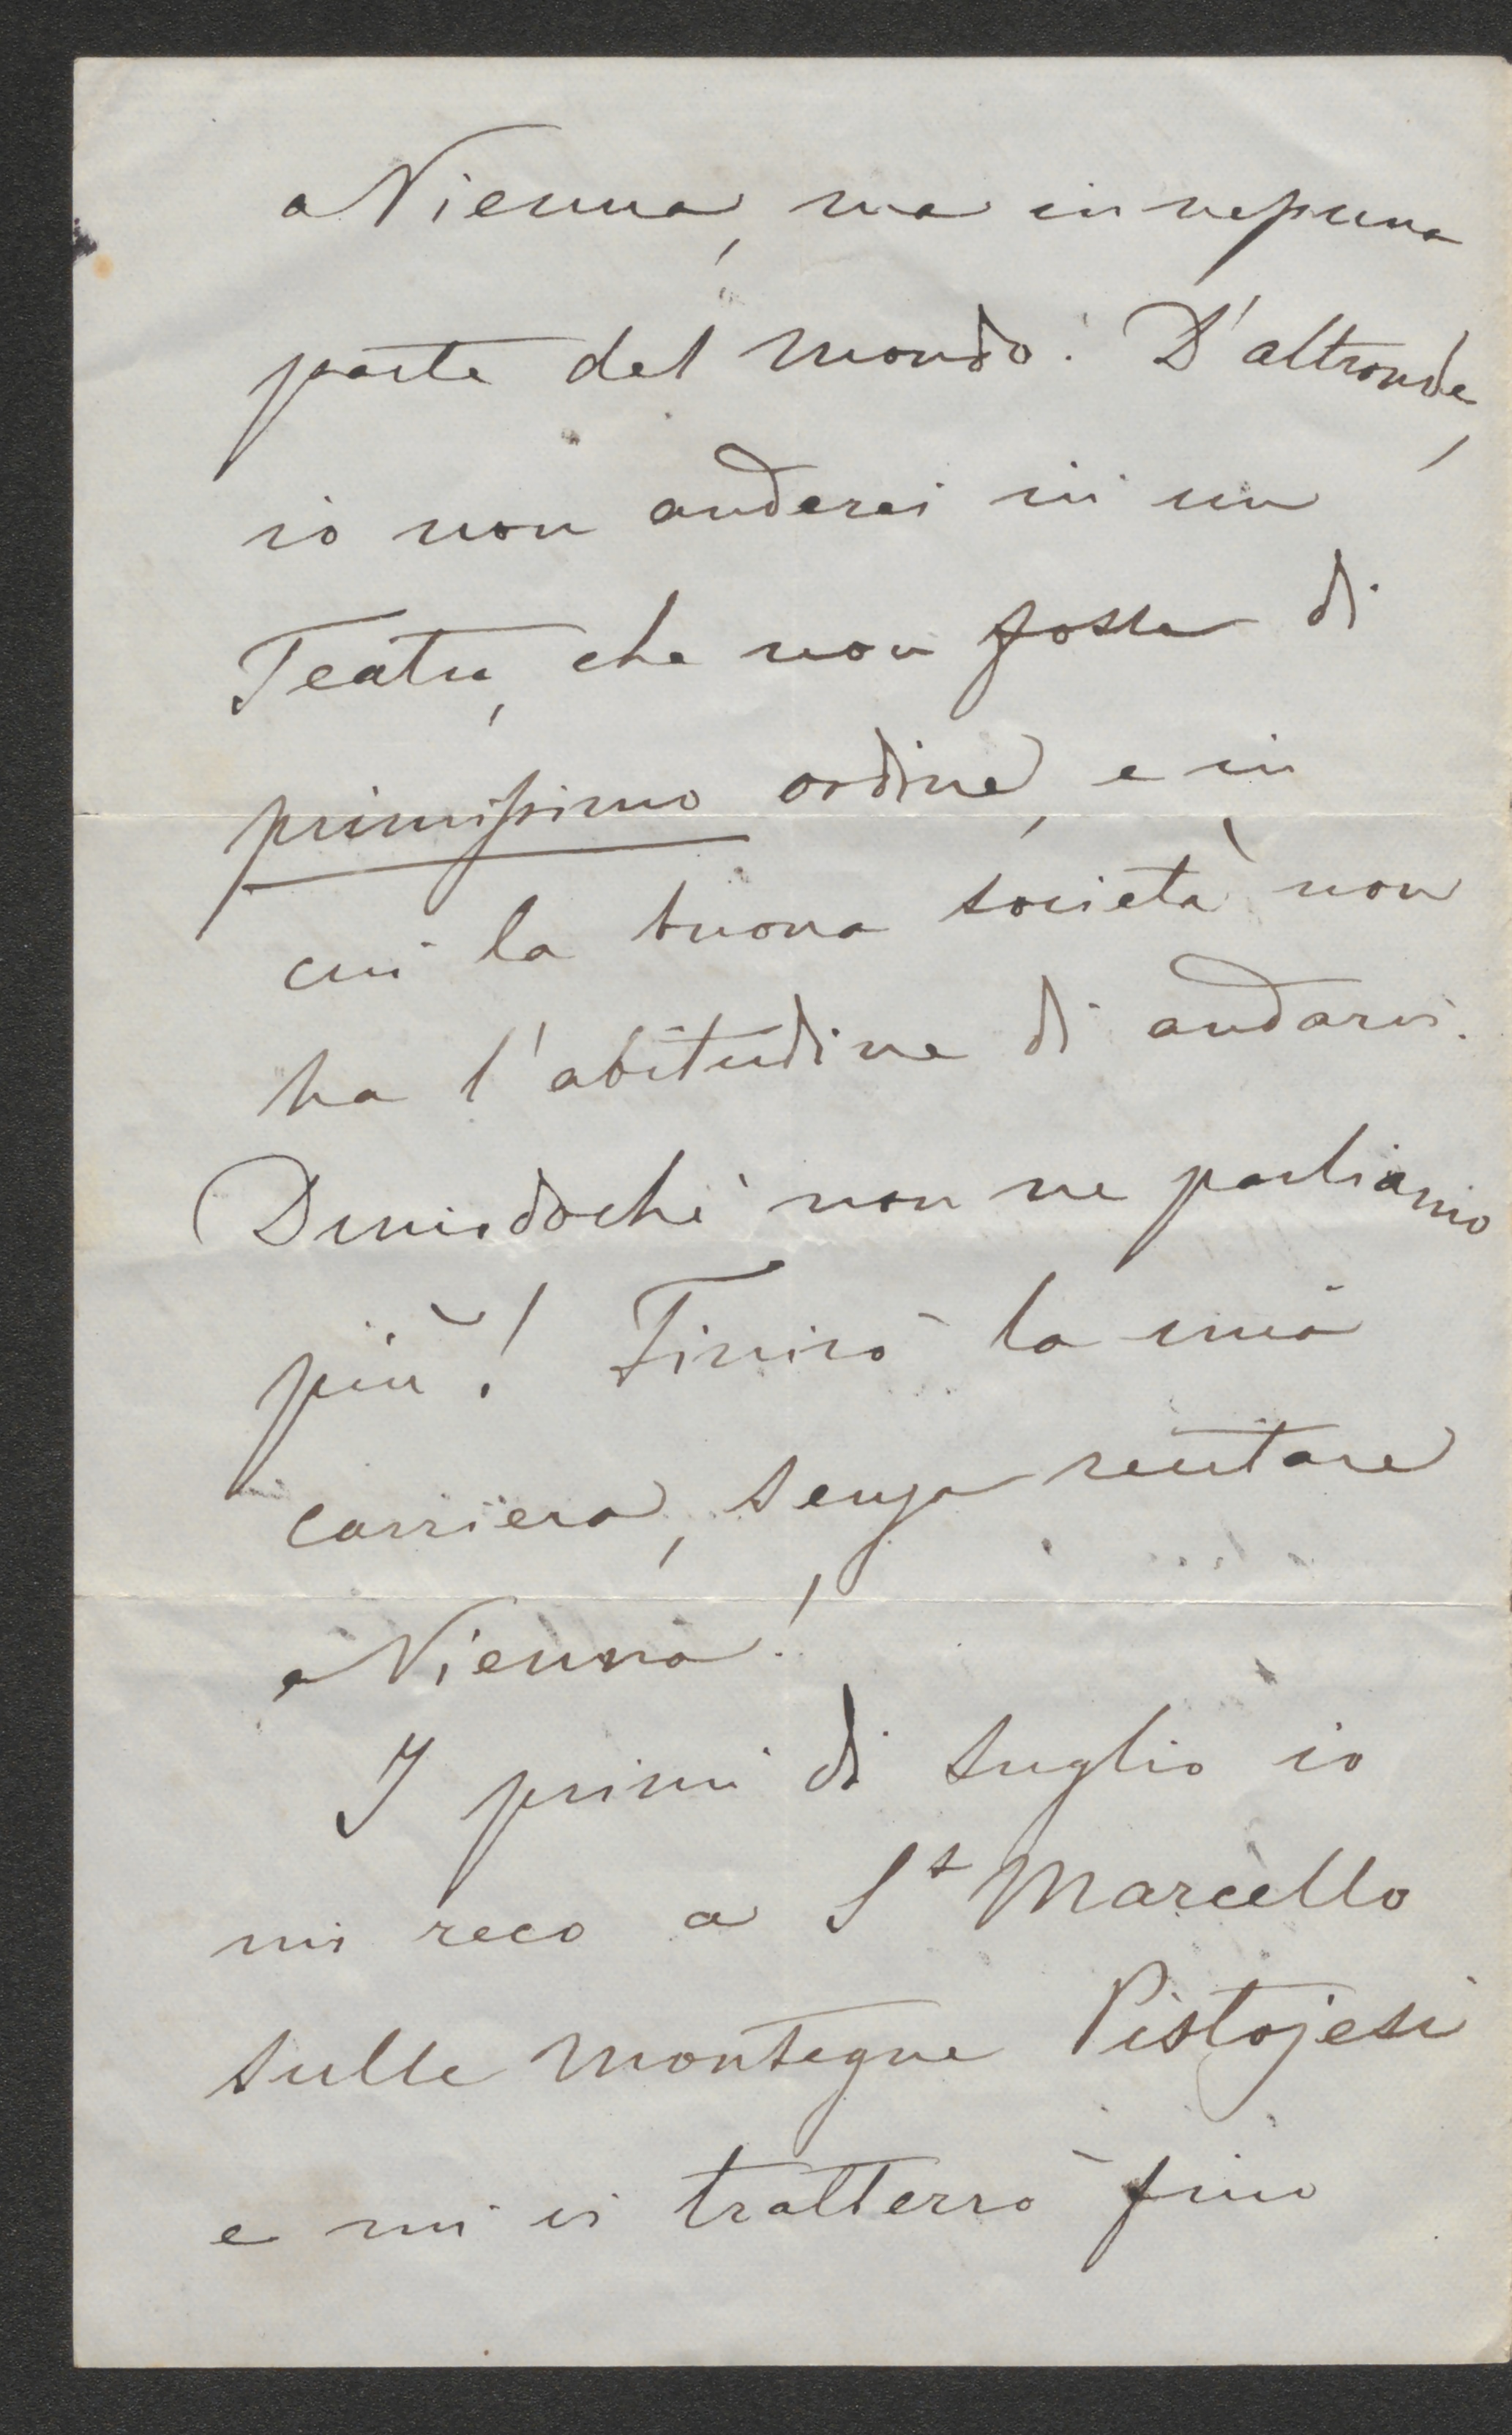 a Vienna, ma in nessuna
parte del mondo! D'altronde,
io non anderei in un
Teatro, che non fosse di
primissimo ordine, e in
cui la buona società non
ha l'abitudine di andarvi.
Dimodochè non ne parliamo
più! Finirò la mia
carriera, senza recitare
a Vienna!
I primi di Luglio io
mi reco a St Marcello
sulle montagne Pistojesi
e mi vi tratterrò fino